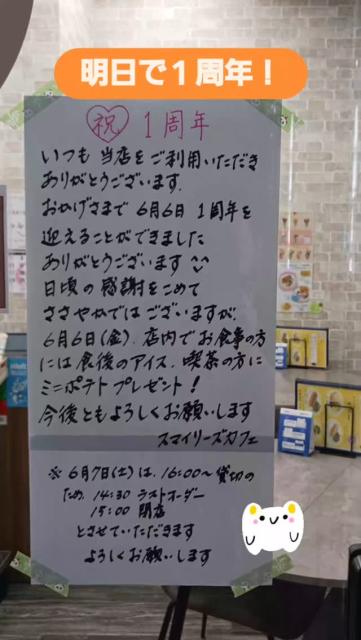 明日で1周年！
祝 1周年
いつも 当店を ご利用いただき
ありがとうございます。
おかげさまで 6月6日 1周年を
迎えることができました
ありがとうございます
日頃の 感謝をこめて
ささやかでは ございますが、
6月6日(金)、店内で お食事の方
には 食後のアイス、喫茶の方に
ミニポテト プレゼント！
今後ともよろしくお願いします
スマイリーズカフェ
※ 6月7日(土)は、16:00〜 貸切の
ため 14:30 ラストオーダー
15:00 閉店
とさせていただきます
よろしくお願いします